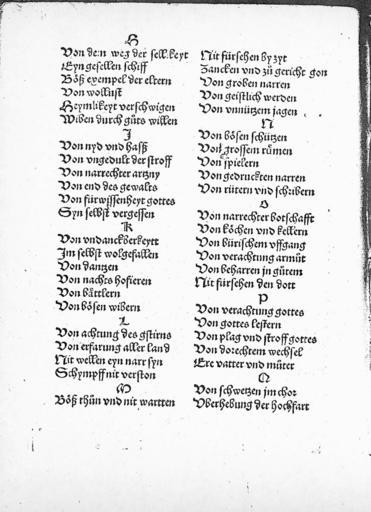 H
Von dem weg der sell.keyt
Eyn gesellen schiff
Böß exempel der eltern
Von wollust
Heymlikeyt verschwigen
Wiben durch gůts willen
J
Von nyd vnd haß
Von vngedult der stroff
Von narrechter artzny
Von end des gewalts
Von fürwissenheyt gottes
Syn selbst vergessen
K
Von vndanckberkeytt
Im selbst wolgefallen
Von dantzen
Von nachts hofieren
Von bättlern
Von bösen wibern
L
Von achtung des gstirns
Von erfarung aller land
Nit wellen eyn narr syn
Schympff nit verston
M
Böß thůn vnd nit wartten
Nit fürsehen by zyt
Zancken vnd zů gericht gon
Von groben narren
Von geistlich werden
Von vnnützem jagen
N
Von bösen schützen
Von grossem růmen
Von spielern
Von gedruckten narren
Von rütern vnd schribern
O
Von narrechter botschafft
Von köchen vnd kellern
Von bürischem vffgang
Von verachtung armůt
Von beharren jn gůtem
Nit fürsehen den dott
P
Von verachtung gottes
Von gottes lestern
Von plag vnd stroff gottes
Von dorechtem wechsel
Ere vatter vnd můter
Q
Von schwetzen jm chor
Vberhebung der hochfart